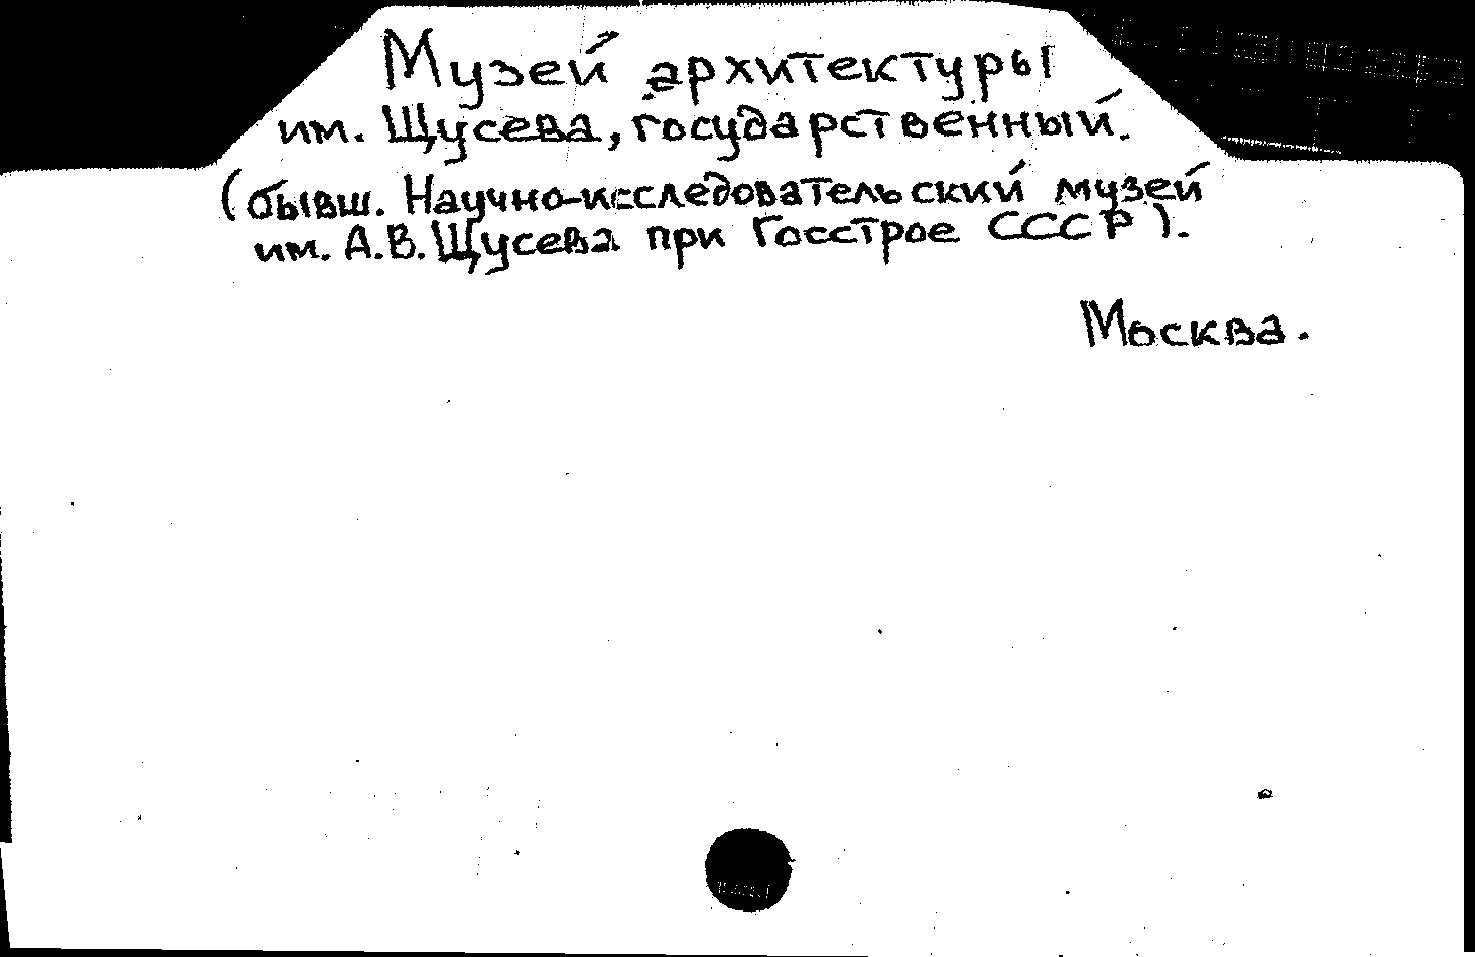 Музей архитектуры
им. Щусева, государственный.
(бывш. Научно-исследовательский музей
им. А.В. Щусева при Госстрое СССР).
Москва.